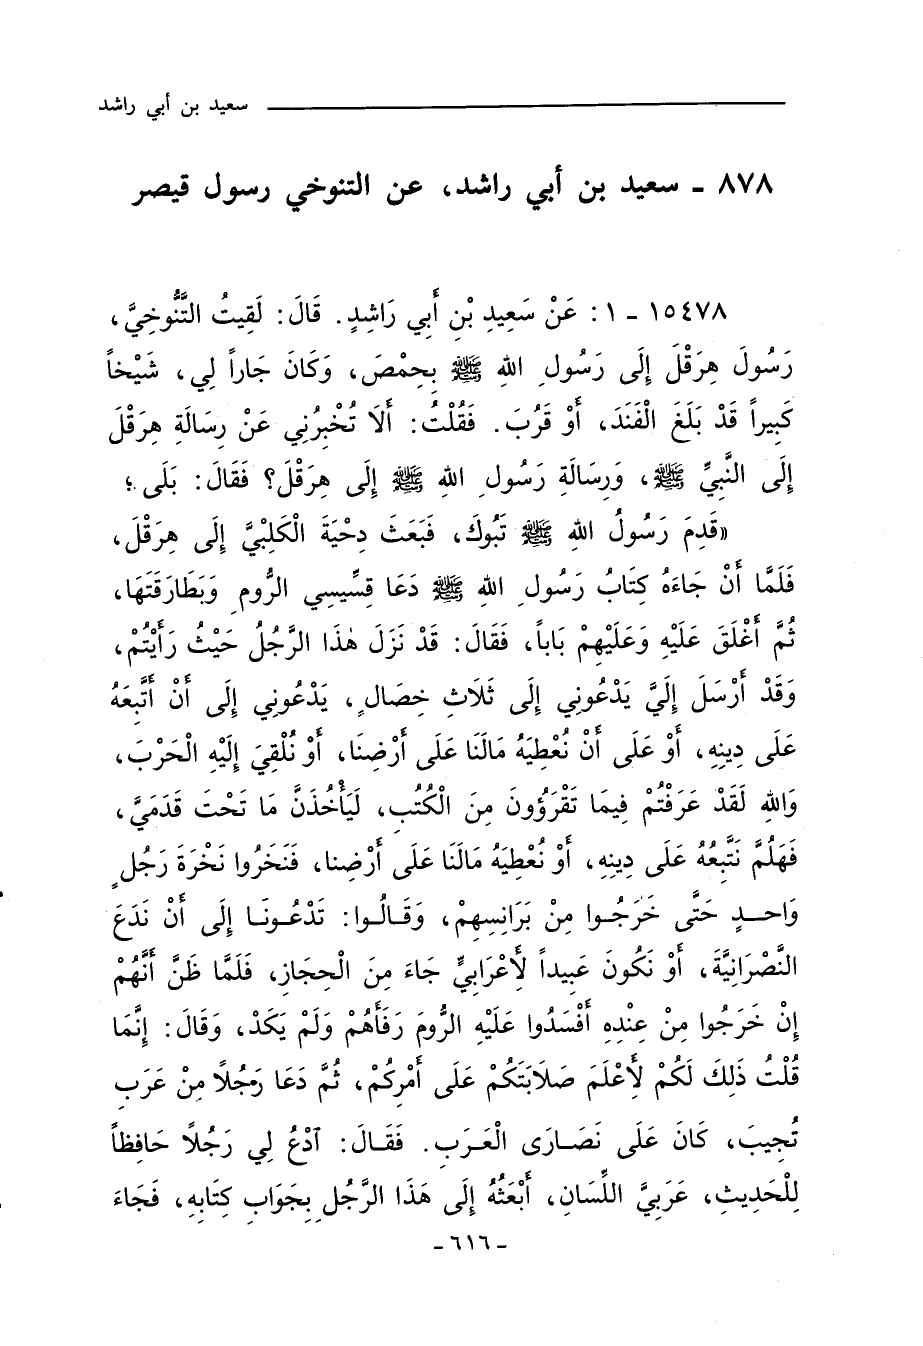 سعيد بن أبي راشد
٨٧٨ - سعيد بن أبي راشد، عن التنوخي رسول قيصر
١٥٤٧٨ - ١: عَنْ سَعِيدِ بْنِ أَبي رَاشِدٍ. قَالَ: لَقِيتُ التَّنُوخِيَّ،
رَسُولَ هِرَقْلَ إِلَى رَسُولِ اللهِ ﷺ بِحِمْصَ، وَكَانَ جَاراً لِي، شَيْخاً
كَبِيراً قَدْ بَلَغَ الْفَنَدَ، أَوْ قَرُبَ. فَقُلْتُ: أَلَا تُخْبِرُنِي عَنْ رِسَالَةِ هِرَقْلَ
إِلَى النَّبِيِّ ﷺ، وَرِسَالَةِ رَسُولِ اللهِ ﷺ إِلَى هِرَقْلَ؟ فَقَالَ: بَلَى؛
«قَدِمَ رَسُولُ اللهِ ﷺ تَبُوكَ، فَبَعَثَ دِحْيَةَ الْكَلِبْيَّ إِلَى هِرَقْلَ،
فَلَمَّا أَنْ جَاءَهُ كِتَابُ رَسُولِ اللهِ ﷺ دَعَا قِسِّيسِي الرُّومِ وَبَطَارَقَتَهَا،
ثُمَّ أَغْلَقَ عَلَيْهِ وَعَلَيْهِمْ بَاباً، فَقَالَ: قَدْ نَزَلَ هٰذَا الرَّجُلُ حَيْثُ رَأَيْتُمْ،
وَقَدْ أَرْسَلَ إِلَيَّ يَدْعُونِي إِلَى ثَلَاثِ خِصَالٍ، يَدْعُونِي إِلَى أَنْ أَتَّبِعَهُ
عَلَى دِينِهِ، أَوْ عَلَى أَنْ نُعْطِيَهُ مَالَنَا عَلَى أَرْضِنَا، أَوْ نُلْقِيَ إِلَيْهِ الْحَرْبَ،
وَاللهِ لَقَدْ عَرَفْتُمْ فِيمَا تَقْرَؤُونَ مِنَ الْكُتُبِ، لَيَأْخُذَنَّ مَا تَحْتَ قَدَمَيَّ،
فَهَلُمَّ نَتَّبِعُهُ عَلَى دِينِهِ، أَوْ نُعْطِيَهُ مَالَنَا عَلَى أَرْضِنا، فَنَخَرُوا نَخْرَةَ رَجُلٍ
وَاحِدٍ حَتَّى خَرَجُوا مِنْ بَرَانِسِهِمْ، وَقَالُوا: تَدْعُونَا إِلَى أَنْ نَدَعَ
النَّصْرَانِيَّةَ، أَوْ نَكُونَ عَبِيداً لِأَعْرَابيٍّ جَاءَ مِنَ الْحِجَازِ، فَلَمَّا ظَنَّ أَنَّهُمْ
إِنْ خَرَجُوا مِنْ عِنْدِهِ أَفْسَدُوا عَلَيْهِ الرُّومَ رَفَأَهُمْ وَلَمْ يَكَدْ، وَقَالَ: إِنَّمَا
قُلْتُ ذَلِكَ لَكُمْ لِأَعْلَمَ صَلَابَتَكُمْ عَلَى أَمْرِكُمْ، ثُمَّ دَعَا رَجُلًا مِنْ عَرَبِ
تُجِيبَ، كَانَ عَلَى نَصَارَى الْعَرَبِ. فَقَالَ: آدْعُ لِي رَجُلًا حَافِظاً
لِلْحَدِيثِ، عَرَبِيَّ اللِّسَانِ، أَبْعَثُهُ إِلَى هَذَا الرَّجُلِ بِجَوَابِ كِتَابِهِ، فَجَاءَ
- ٦١٦ -